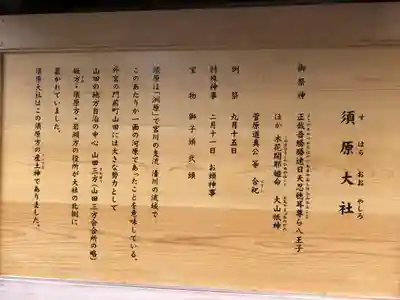 須原大社
す はら おお やしろ
御祭神
正哉吾勝勝速日天忍穂耳尊ら八王子
ほか 木花開耶姫命 大山祇神
菅原道真公 等 合祀
例祭 九月十五日
特殊神事 二月十一日 お頭神事
宝物 獅子頭 弐頭
須原は「洲原」で宮川の支流、清川の流域で
このあたりが一面の河原であったことを意味している。
外宮の門前町山田には大きな勢力として
山田の地方自治の中心 山田三方(山田三方会合所の略)
坂方・須原方・岩渕方の役所が大社の北側に
置かれていました。
須原大社はこの須原方の産土神でありました。